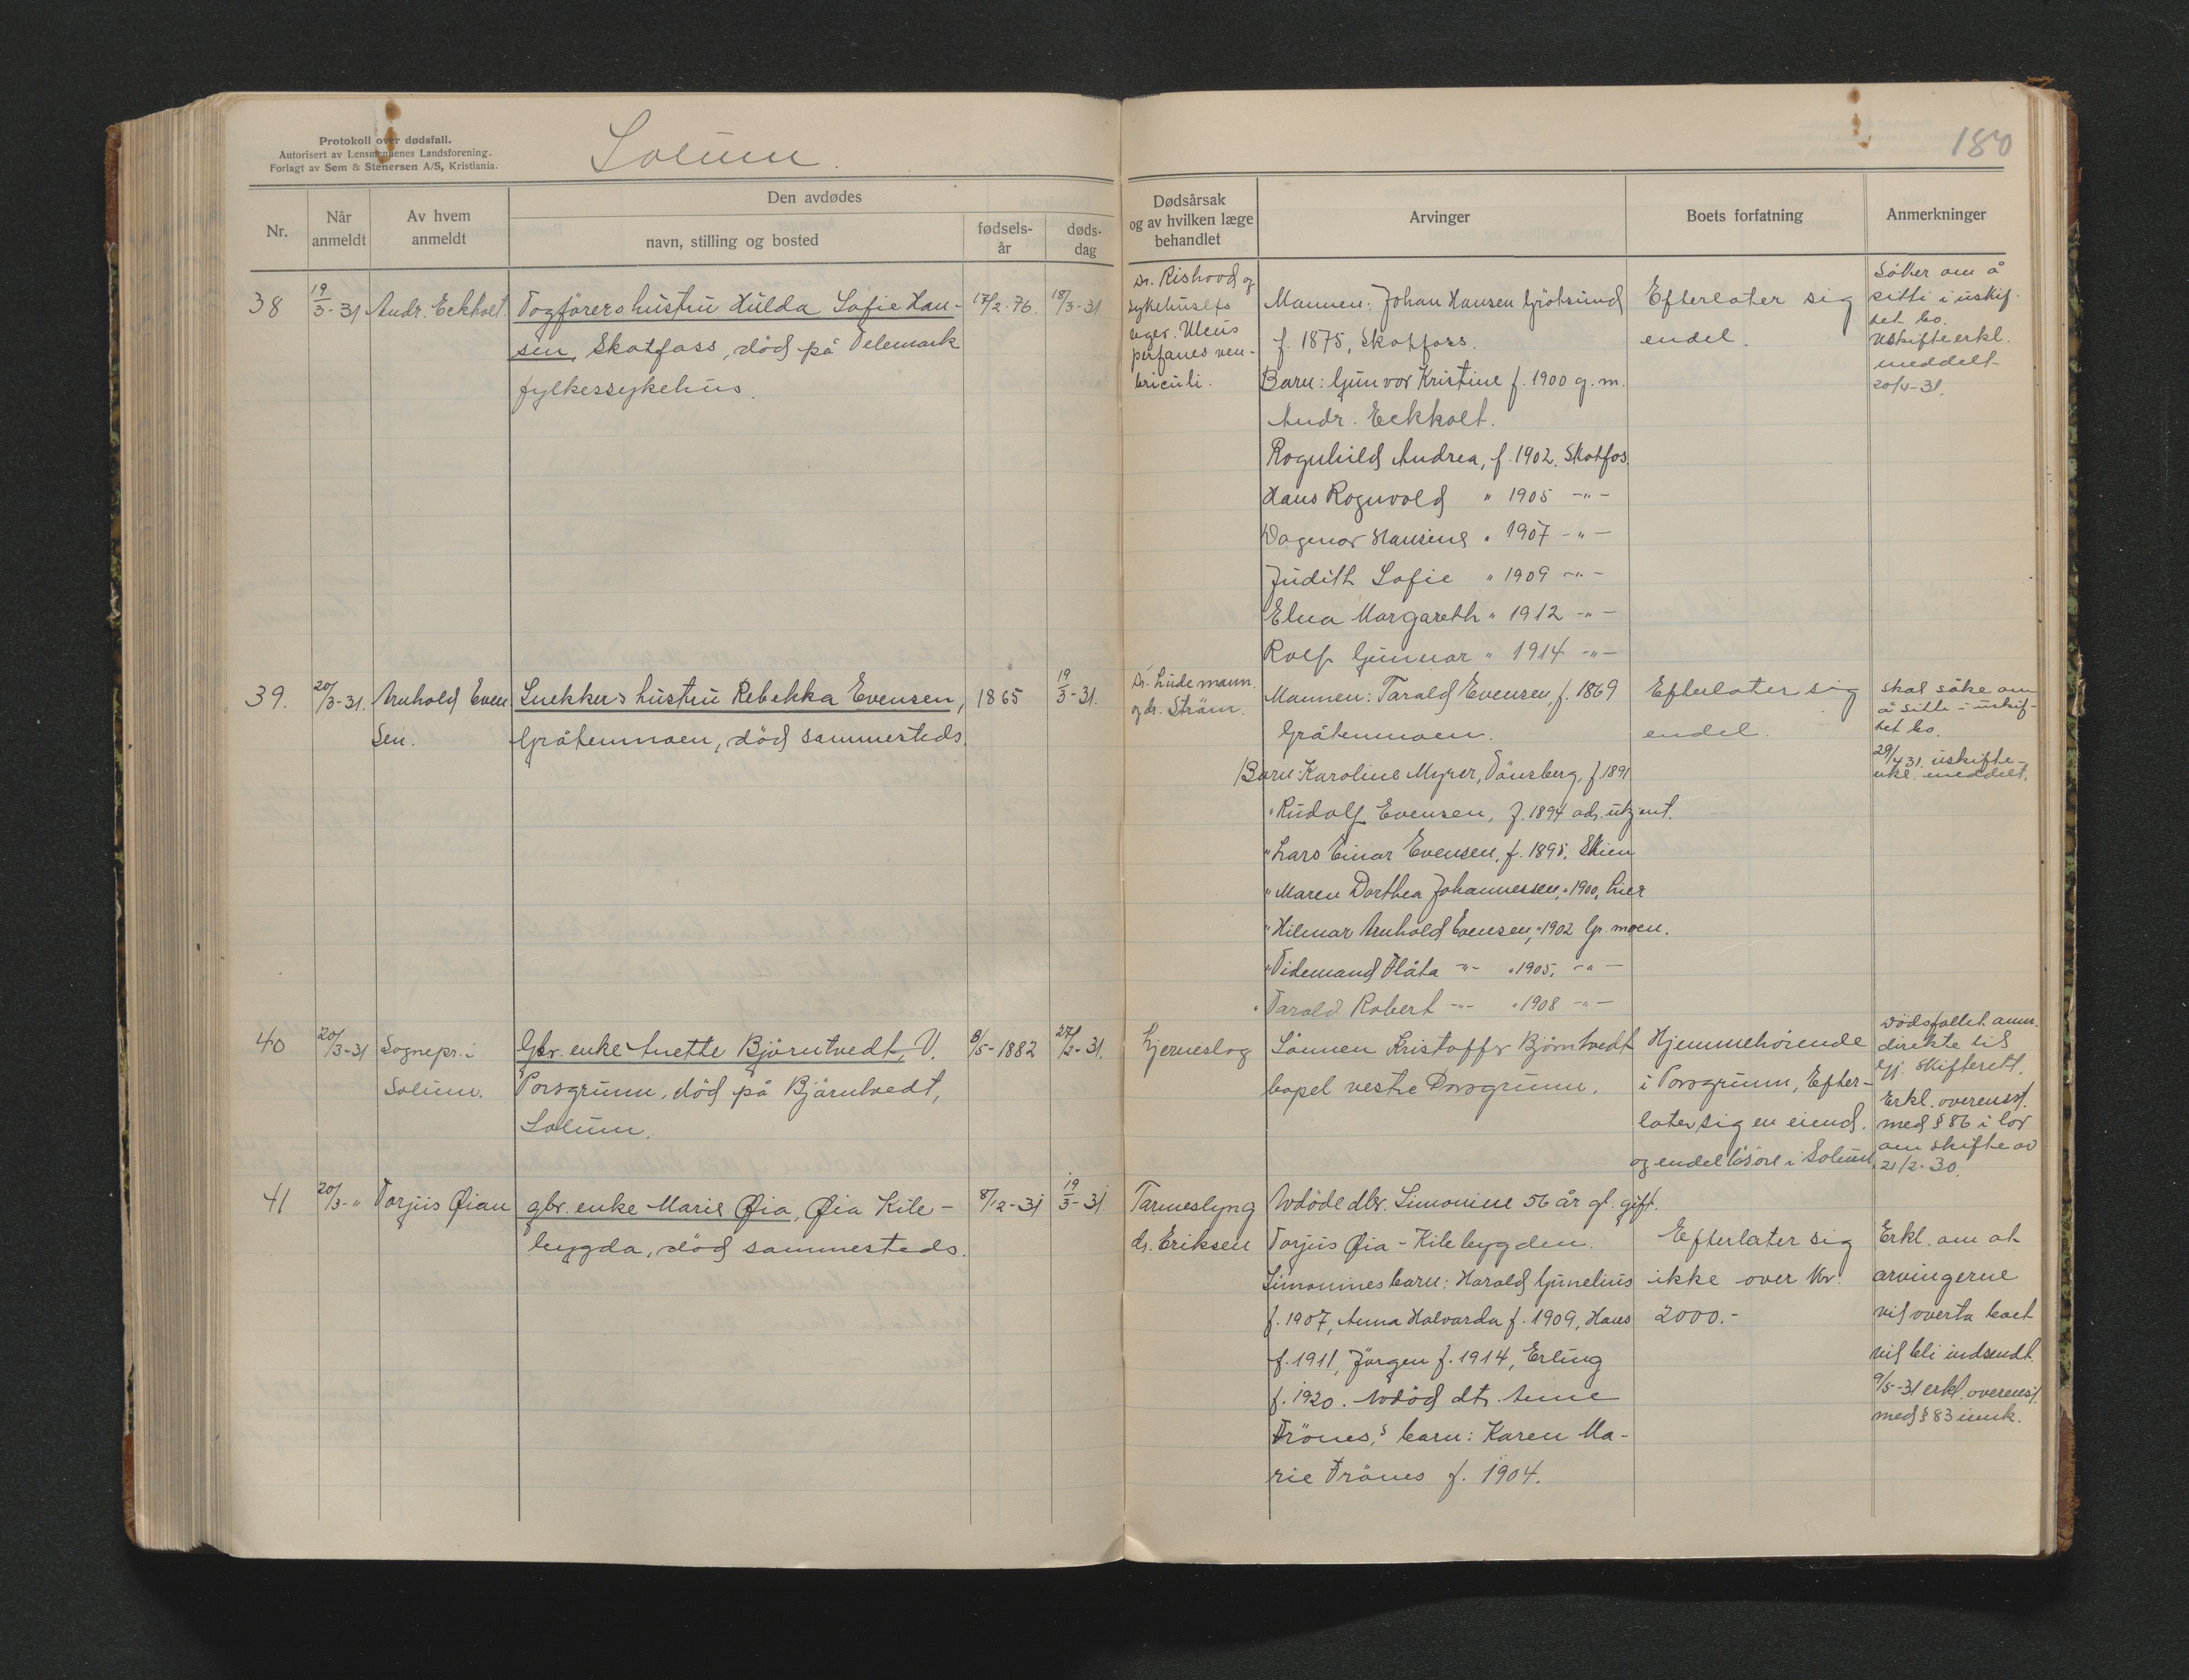 Protokoll over dødsfall.
Autorisert av Lensmennenes Landsforening.
Forlagt av Sem & Stenersen A/S, Kristiania.
Solum.
180
Nr.
Når anmeldt
Av hvem anmeldt
Den avdødes
navn, stilling og bosted
fødsels-år
døds-dag
Dødsårsak og av hvilken læge behandlet
Arvinger
Boets forfatning
Anmerkninger
38
19/3-31
Andr. Eckholt.
Togförers hustru Hulda Sofie Han-
sen, Skotfoss, död på Telemark
fylkessykehus.
17/2-76.
18/3-31
Dr. Rishovd og
sykehusets
leger. Ulcus
perfanes ven-
triculi.
Mannen: Johan Hansen Grötsund
f. 1875, Skotfoss.
Barn: Gunvor Kristine f. 1900 g. m.
Andr. Eckholt.
Ragnhild Andrea, f. 1902. Skotfos.
Hans Ragnvald " 1905 -"-
Dagmar Hansine " 1907 -"-
Judith Sofie " 1909 -"-
Elna Margareth " 1912 -"-
Rolf Gunnar " 1914 -"-
Efterlater sig
endel.
Söker om å
sitti i uskif-
tet bo.
Uskifteerkl.
meddelt
20/4-31.
39.
20/3-31.
Arnhold Even
sen.
Snekkers hustru Rebekka Evensen,
Gråtenmoen, död sammesteds.
1865
19/3-31.
Dr. Lüdemann.
og dr. Ström.
Mannen: Tarald Evensen, f. 1869
Gråtenmoen.
Barn: Karoline Myrer, Tönsberg, f. 1891
" Rudolf Evensen, f. 1894 adr. ukjent.
" Lars Einar Evensen, f. 1895, Skien
" Maren Dorthea Johannessen, " 1900, her
" Hilmar Arnhold Evensen, " 1902 Gr. moen.
" Tidemand Flåta -"- " 1905, -"-
" Tarald Robert -"- " 1908 -"-
Efterlater sig
endel.
Skal söke om
å sitte i uskif-
tet bo.
29/4 31. uskifte-
erkl. meddelt.
40
20/3-31
Sognepr. i
Solum.
Gbr. enke Anette Björntvedt, V.
Porsgrunn, död på Björntvedt,
Solum.
8/5-1882
27/2-31.
Hjerneslag
Sönnen Kristoffer Björntvedt
bopel vestre Porsgrunn.
Hjemmehörende
i Porsgrunn, Efter-
later sig en eiend.
og endel lösöre i Solum
Dödsfallet anm.
direkte til
Gj. Skifterett.
Erkl. overensst.
med § 86 i lov
om skifte av
21/2-30
41
20/3-"
Torjus Øian
gbr. enke Marie Øia, Øia Kile-
bygda, död sammesteds.
8/12-31
19/3-31
Tarmeslyng
dr. Eriksen
Avdöde dtr. Simonine 56 år gl. gift.
Torjus Øia - Kilebygden.
Simonines barn: Harald Gunelius
f. 1907, Anna Halvarda f. 1909, Hans
f. 1911, Jörgen f. 1914, Erling
f. 1920. Avdöd dtr. Anne
Trönes,s barn: Karen Ma-
rie Trönes f. 1904.
Efterlater sig
ikke over kr.
2000.-
Erkl. om at
arvingerne
vil overta boet
vil bli indsendt.
9/5-31 erkl. overenst.
med § 83 innk.